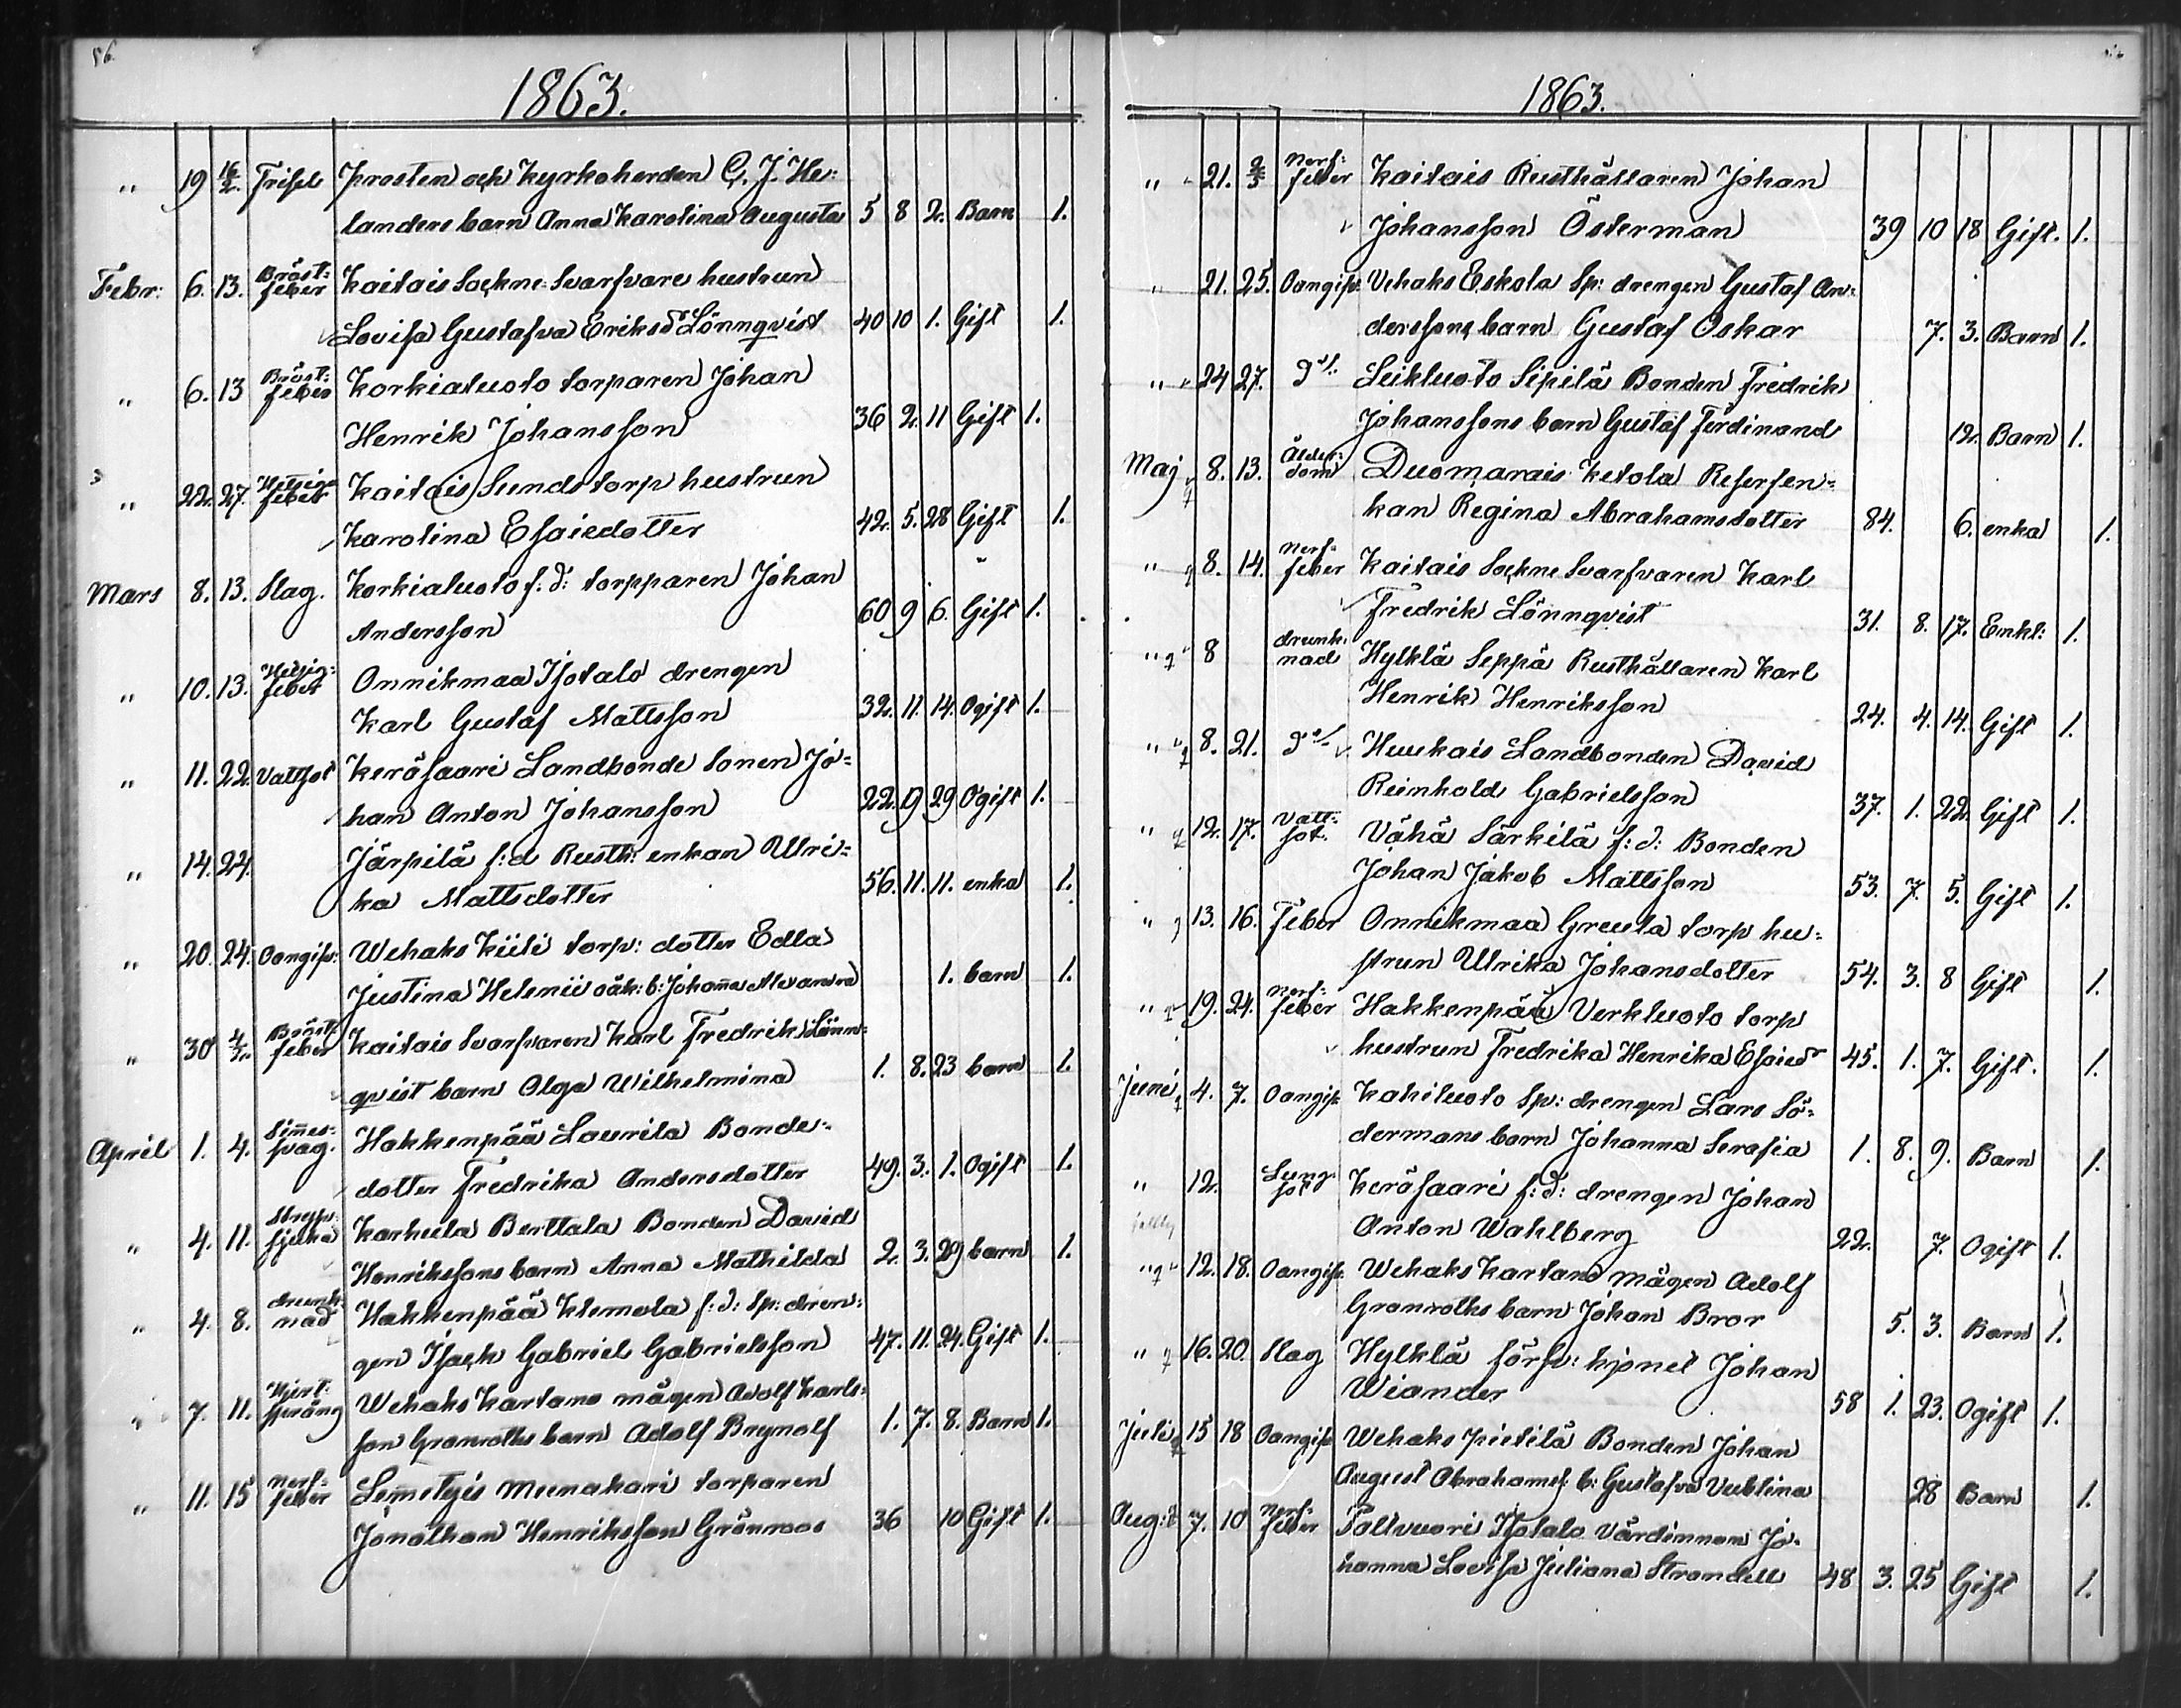 56.
1863.
" 19 16/2. Frisel Prosten och Kyrkoherden G. J. He=
landers barn Anna Karolina Augusta 5 8 2. Barn 1.
Febr: 6. 13. Bröst=feber Kaitais Sockne Svarfvare hustrun
Lovisa Gustafva Eriksdr Lönnqvist 40 10 1. Gift 1.
" 6. 13 Bröst=feber Korkialuoto torparen Johan
Henrik Johansson 36 2. 11 Gift 1.
" 22. 27. feber Kaitais Sunds torp hustrun
Karolina Esaiedotter 42. 5. 28 Gift 1.
Mars 8. 13. Slag. Korkialuoto f: d: torpparen Johan
Andersson 60 9 6. Gift 1.
" 10. 13. feber Onnikmaa Isotalo drengen
Karl Gustaf Mattsson 32. 11. 14. Ogift 1.
" 11. 22. Vattsot Keräsaari Landbonde sonen Jo=
han Anton Johansson 22. 9 29 Ogift 1.
" 14. 24. Järpilä f: d Rusth: enkan Ulri=
ka Mattsdotter 56. 11. 11. enka 1.
" 20. 24. Oangifv: Wehaks Kiili torp: dotter Edla
Justina Helenii oäk: b: Johanna Alexandra 1. barn 1.
" 30 4/3. Bröst=feber Kaitais Svarfvaren Karl Fredrik Lönn=
qvist barn Olga Wilhelmina 1. 8. 23 barn 1.
April 1. 4. Hakkenpää Laurila Bonde=
dotter Fredrika Andersdotter 49. 3. 1. Ogift 1.
" 4. 11. Strypsjuka Karhula Berttala Bonden David
Henrikssons barn Anna Mathilda 2. 3. 29 barn 1.
" 4. 8. drunknad Hakkenpää Klemola f: d: Sp: dren=
gen Isack Gabriel Gabrielsson 47. 11. 24. Gift 1.
" 7. 11. Hjert=språng Wehaks Kartano mågen Adolf Karls=
son Granroths barn Adolf Brynolf 1. 7. 8. Barn 1.
" 11. 15 Nerf=feber Lemetyis Munakari torparen
Jonathan Henriksson Grönroos 36 10 Gift 1.
1863.
" 21. 2/5 Nerf=feber Kaitais Rusthållaren Johan
Johansson Österman 39 10 18 Gift. 1.
" 21. 25. Oangifv: Vehaks Eskola Sp: drengen Gustaf An=
derssons barn Gustaf Oskar 7. 3. Barn 1.
" 24 27. do Leikluoto Sipilä Bonden Fredrik
Johanssons barn Gustaf Ferdinand 12. Barn 1.
Maj 8. 13. Ålder=dom Duomarais Ketola Reserfen=
kan Regina Abrahamsdotter 84. 6. enka 1.
" 8. 14. Nerf=feber Kaitais Sockne Svarfvaren Karl
Fredrik Lönnqvist 31. 8. 17. Enkl: 1.
" 8 drunk=nad Hylklä Seppä Rusthållaren Karl
Henrik Henriksson 24. 4. 14. Gift 1.
" 8. 21. do Huukais Landbonden David
Reinhold Gabrielsson 37. 1. 22. Gift 1.
" 12. 17. Vatt=sot. Vähä Särkilä f: d: Bonden
Johan Jakob Mattsson 53. 7. 5. Gift 1.
" 13. 16. Feber Onnikmaa Greula torp hu=
strun Ulrika Johansdotter 54. 3. 8 Gift 1.
" 19. 24. Nerf=feber Hakkenpää Verkluoto torp
hustrun Fredrika Henrika Esaiedr 45. 1. 7. Gift. 1.
Juni 4. 7. Oangifv: Kahiluoto Sp: drengen Lars Sö=
dermans barn Johanna Serafia 1. 8. 9. Barn 1.
" 12. Lungsot Keräsaari f: d: drengen Johan
Anton Wahlberg 22. 7. Ogift 1.
" 12. 18. Oangifv: Wehaks Kartano mågen Adolf
Granroths barn Johan Bror 5. 3. Barn 1.
" 16. 20. Slag Hylklä förs: hjonet Johan
Wiander 58 1. 23. Ogift 1.
Juli 15 18 Oangifv Wehaks Pietilä Bonden Johan
August Abrahams: b: Gustafva Vublina 28 Barn 1.
Aug: 7. 10 Nerf=feber Paltvuori Isotalo Värdinnan Jo=
hanna Lovisa Juliana Strandell 48 3. 25 Gift 1.